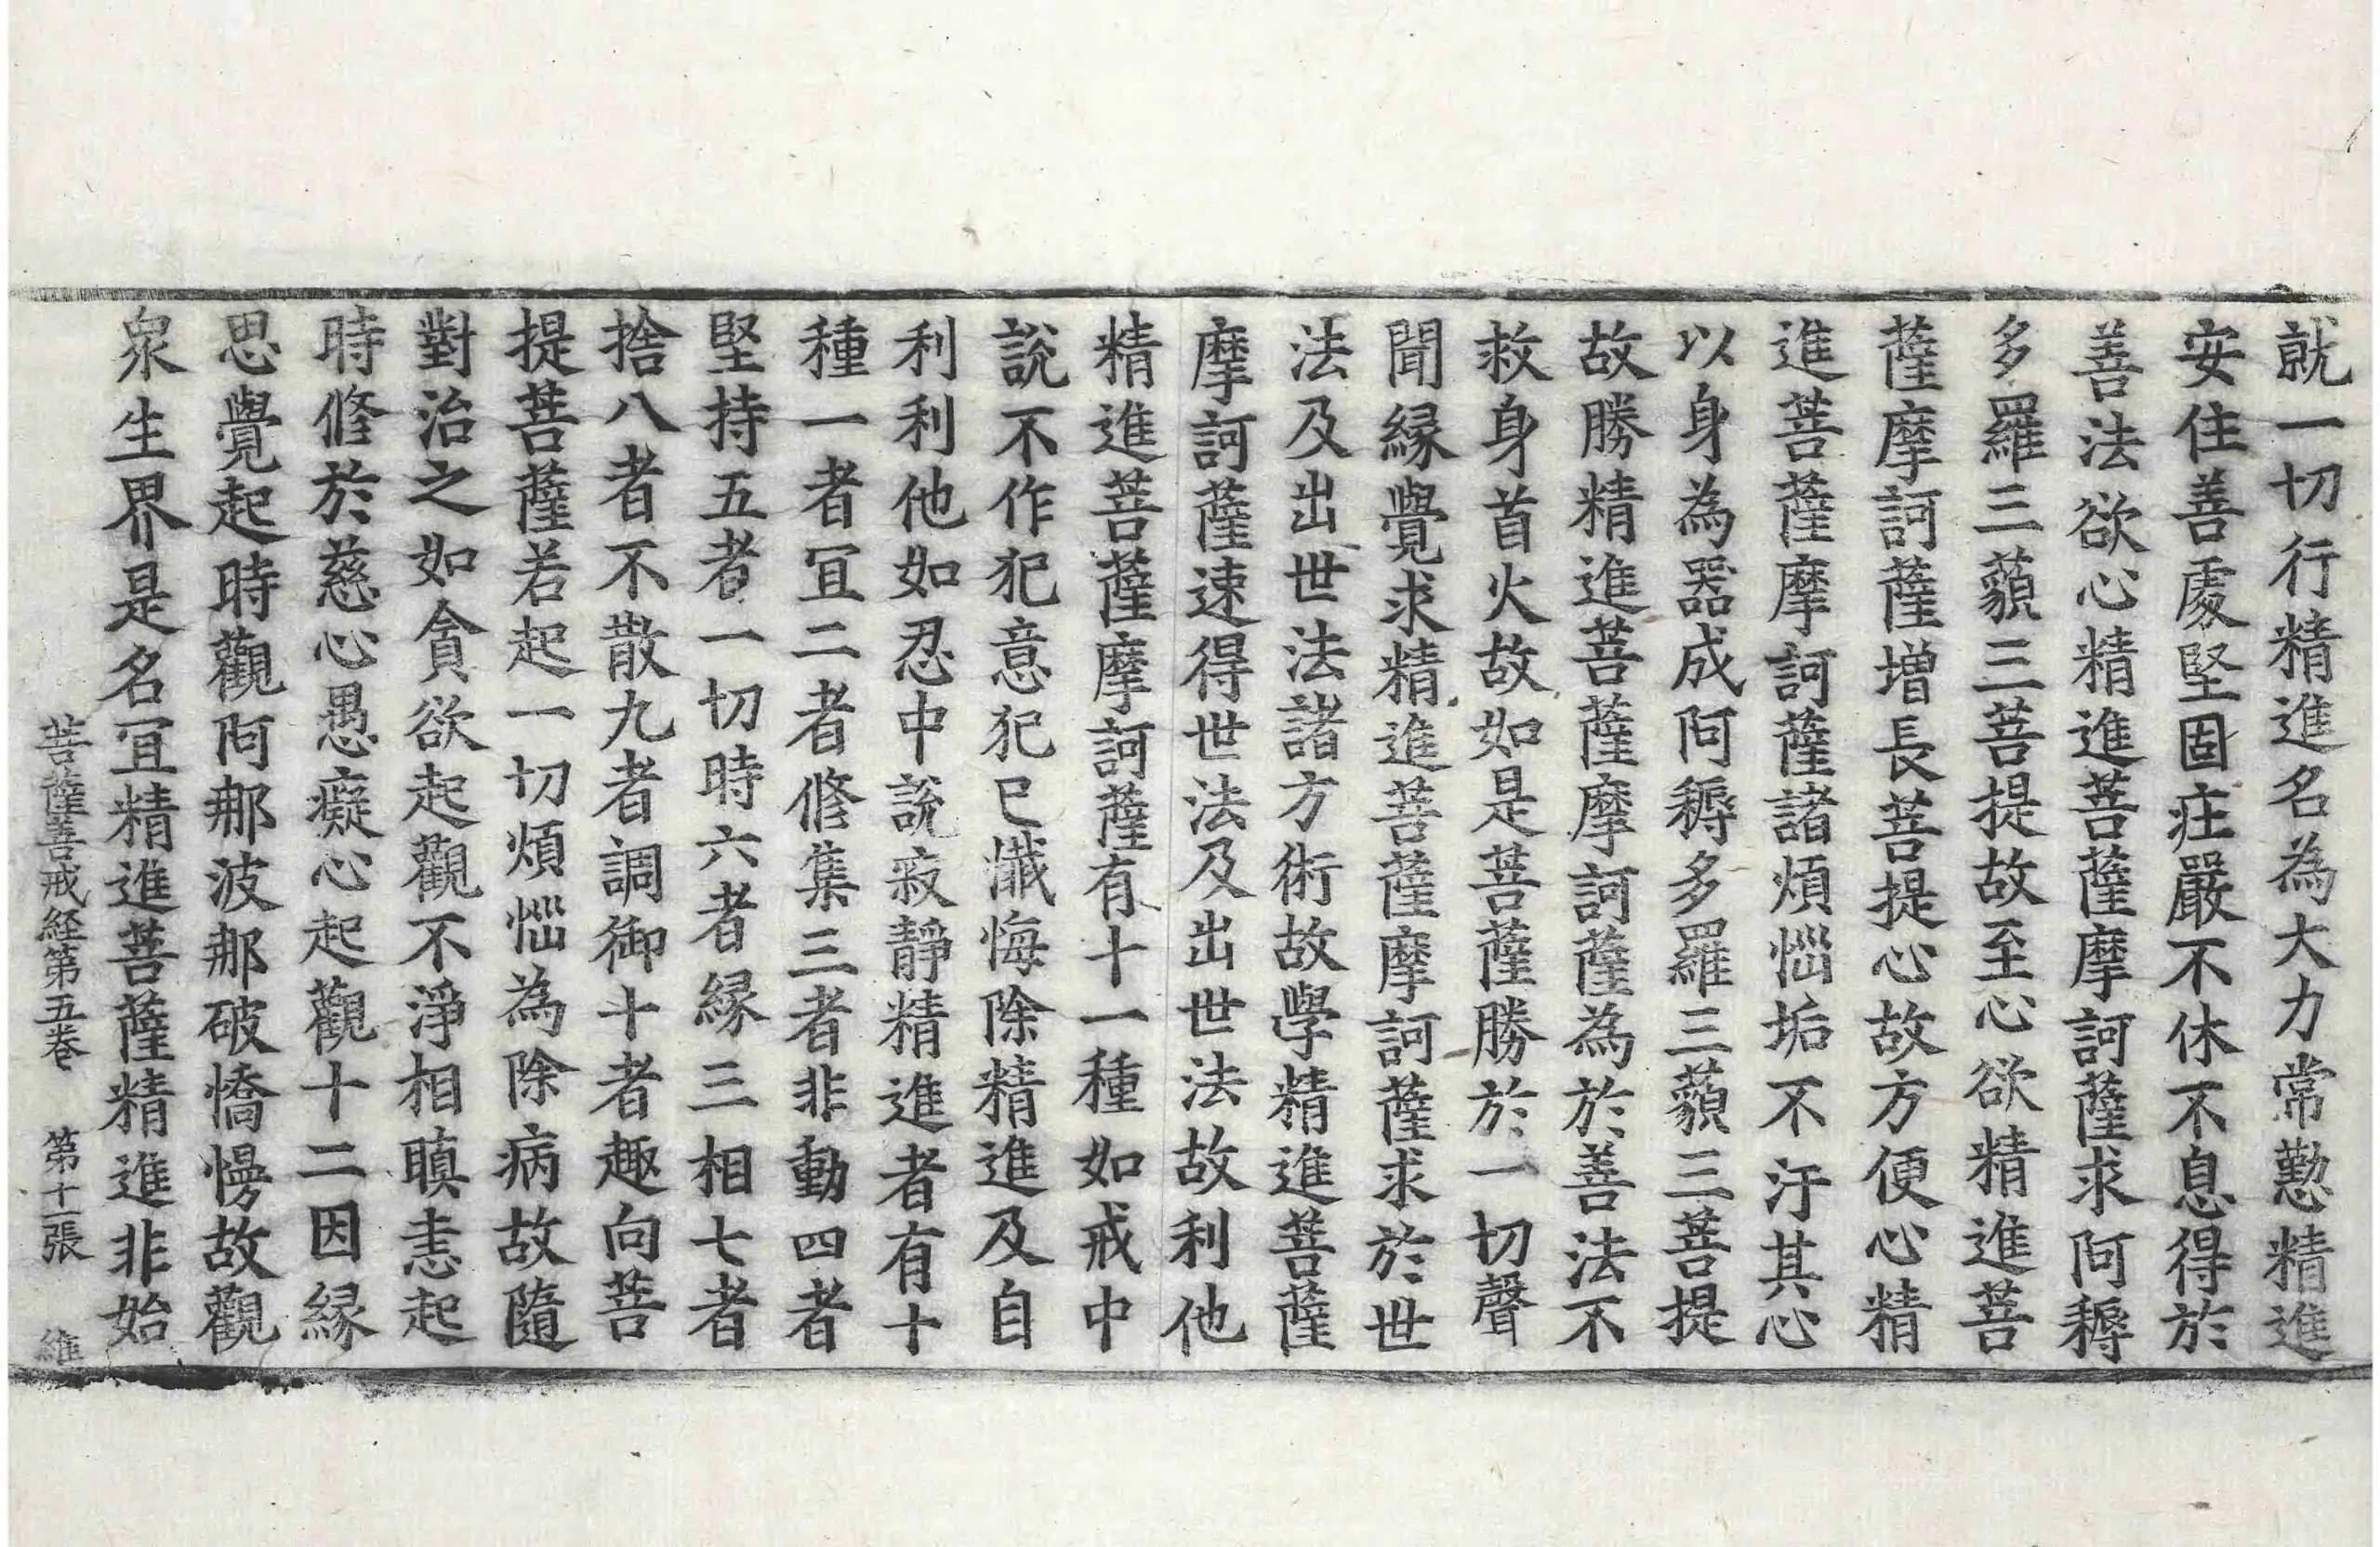 就一切行精進名為大力常懃精進
安住善處堅固庄嚴不休不息得於
善法欲心精進菩薩摩訶薩求阿耨
多羅三藐三菩提故至心欲精進菩
薩摩訶薩增長菩提心故方便心精
進菩薩摩訶薩諸煩惱垢不汙其心
以身為器成阿耨多羅三藐三菩提
故勝精進菩薩摩訶薩為於善法不
救身首火故如是菩薩勝於一切聲
聞緣覺求精進菩薩摩訶薩求於世
法及出世法諸方術故學精進菩薩
摩訶薩速得世法及出世法故利他
精進菩薩摩訶薩有十一種如戒中
說不作犯意犯已懺悔除精進及自
利利他如忍中說寂靜精進者有十
種一者冝二者修集三者非動四者
堅持五者一切時六者緣三相七者
捨八者不散九者調御十者趣向菩
提菩薩若起一切煩惱為除病故隨
對治之如貪欲起觀不淨相瞋恚起
時修於慈心愚癡心起觀十二因緣
思覺起時觀阿那波那破憍慢故觀
眾生界是名冝精進菩薩精進非始
菩薩善戒経第五巻　第十一張　維